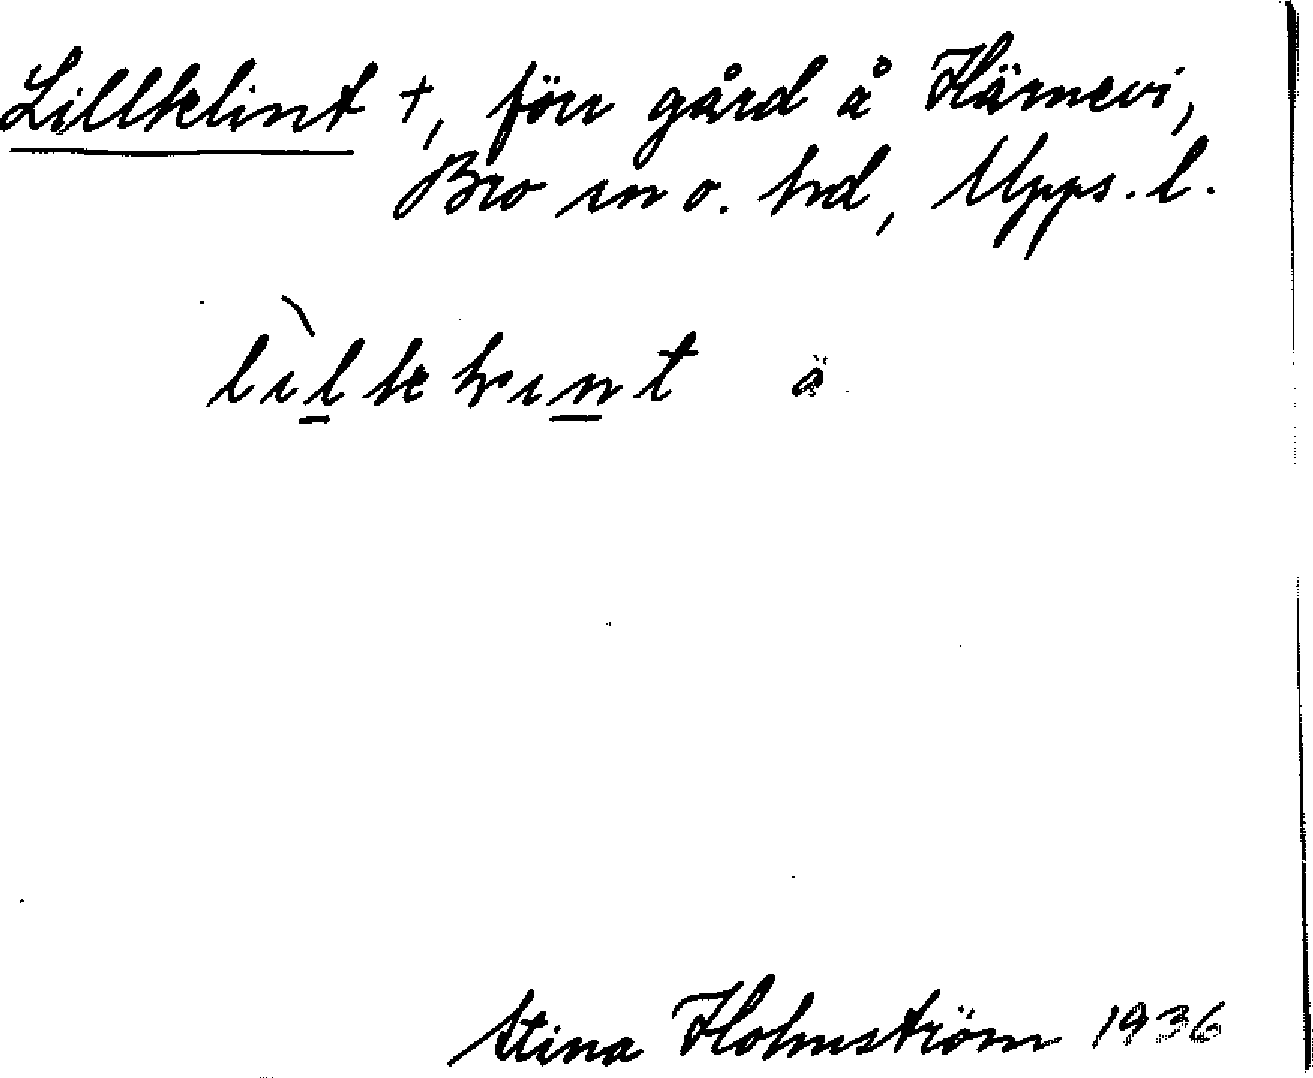 Lillklint +, förr gård å Härnevi,
Bro sn o. hd, Upps. l.
ä
Stina Holmström 1936